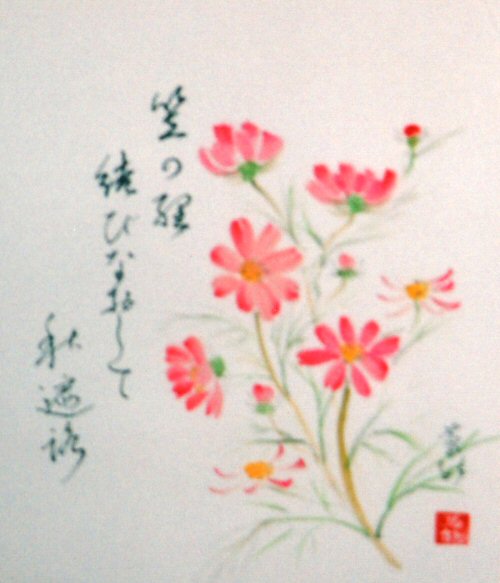 笠の紐
結びなおして
秋遍路